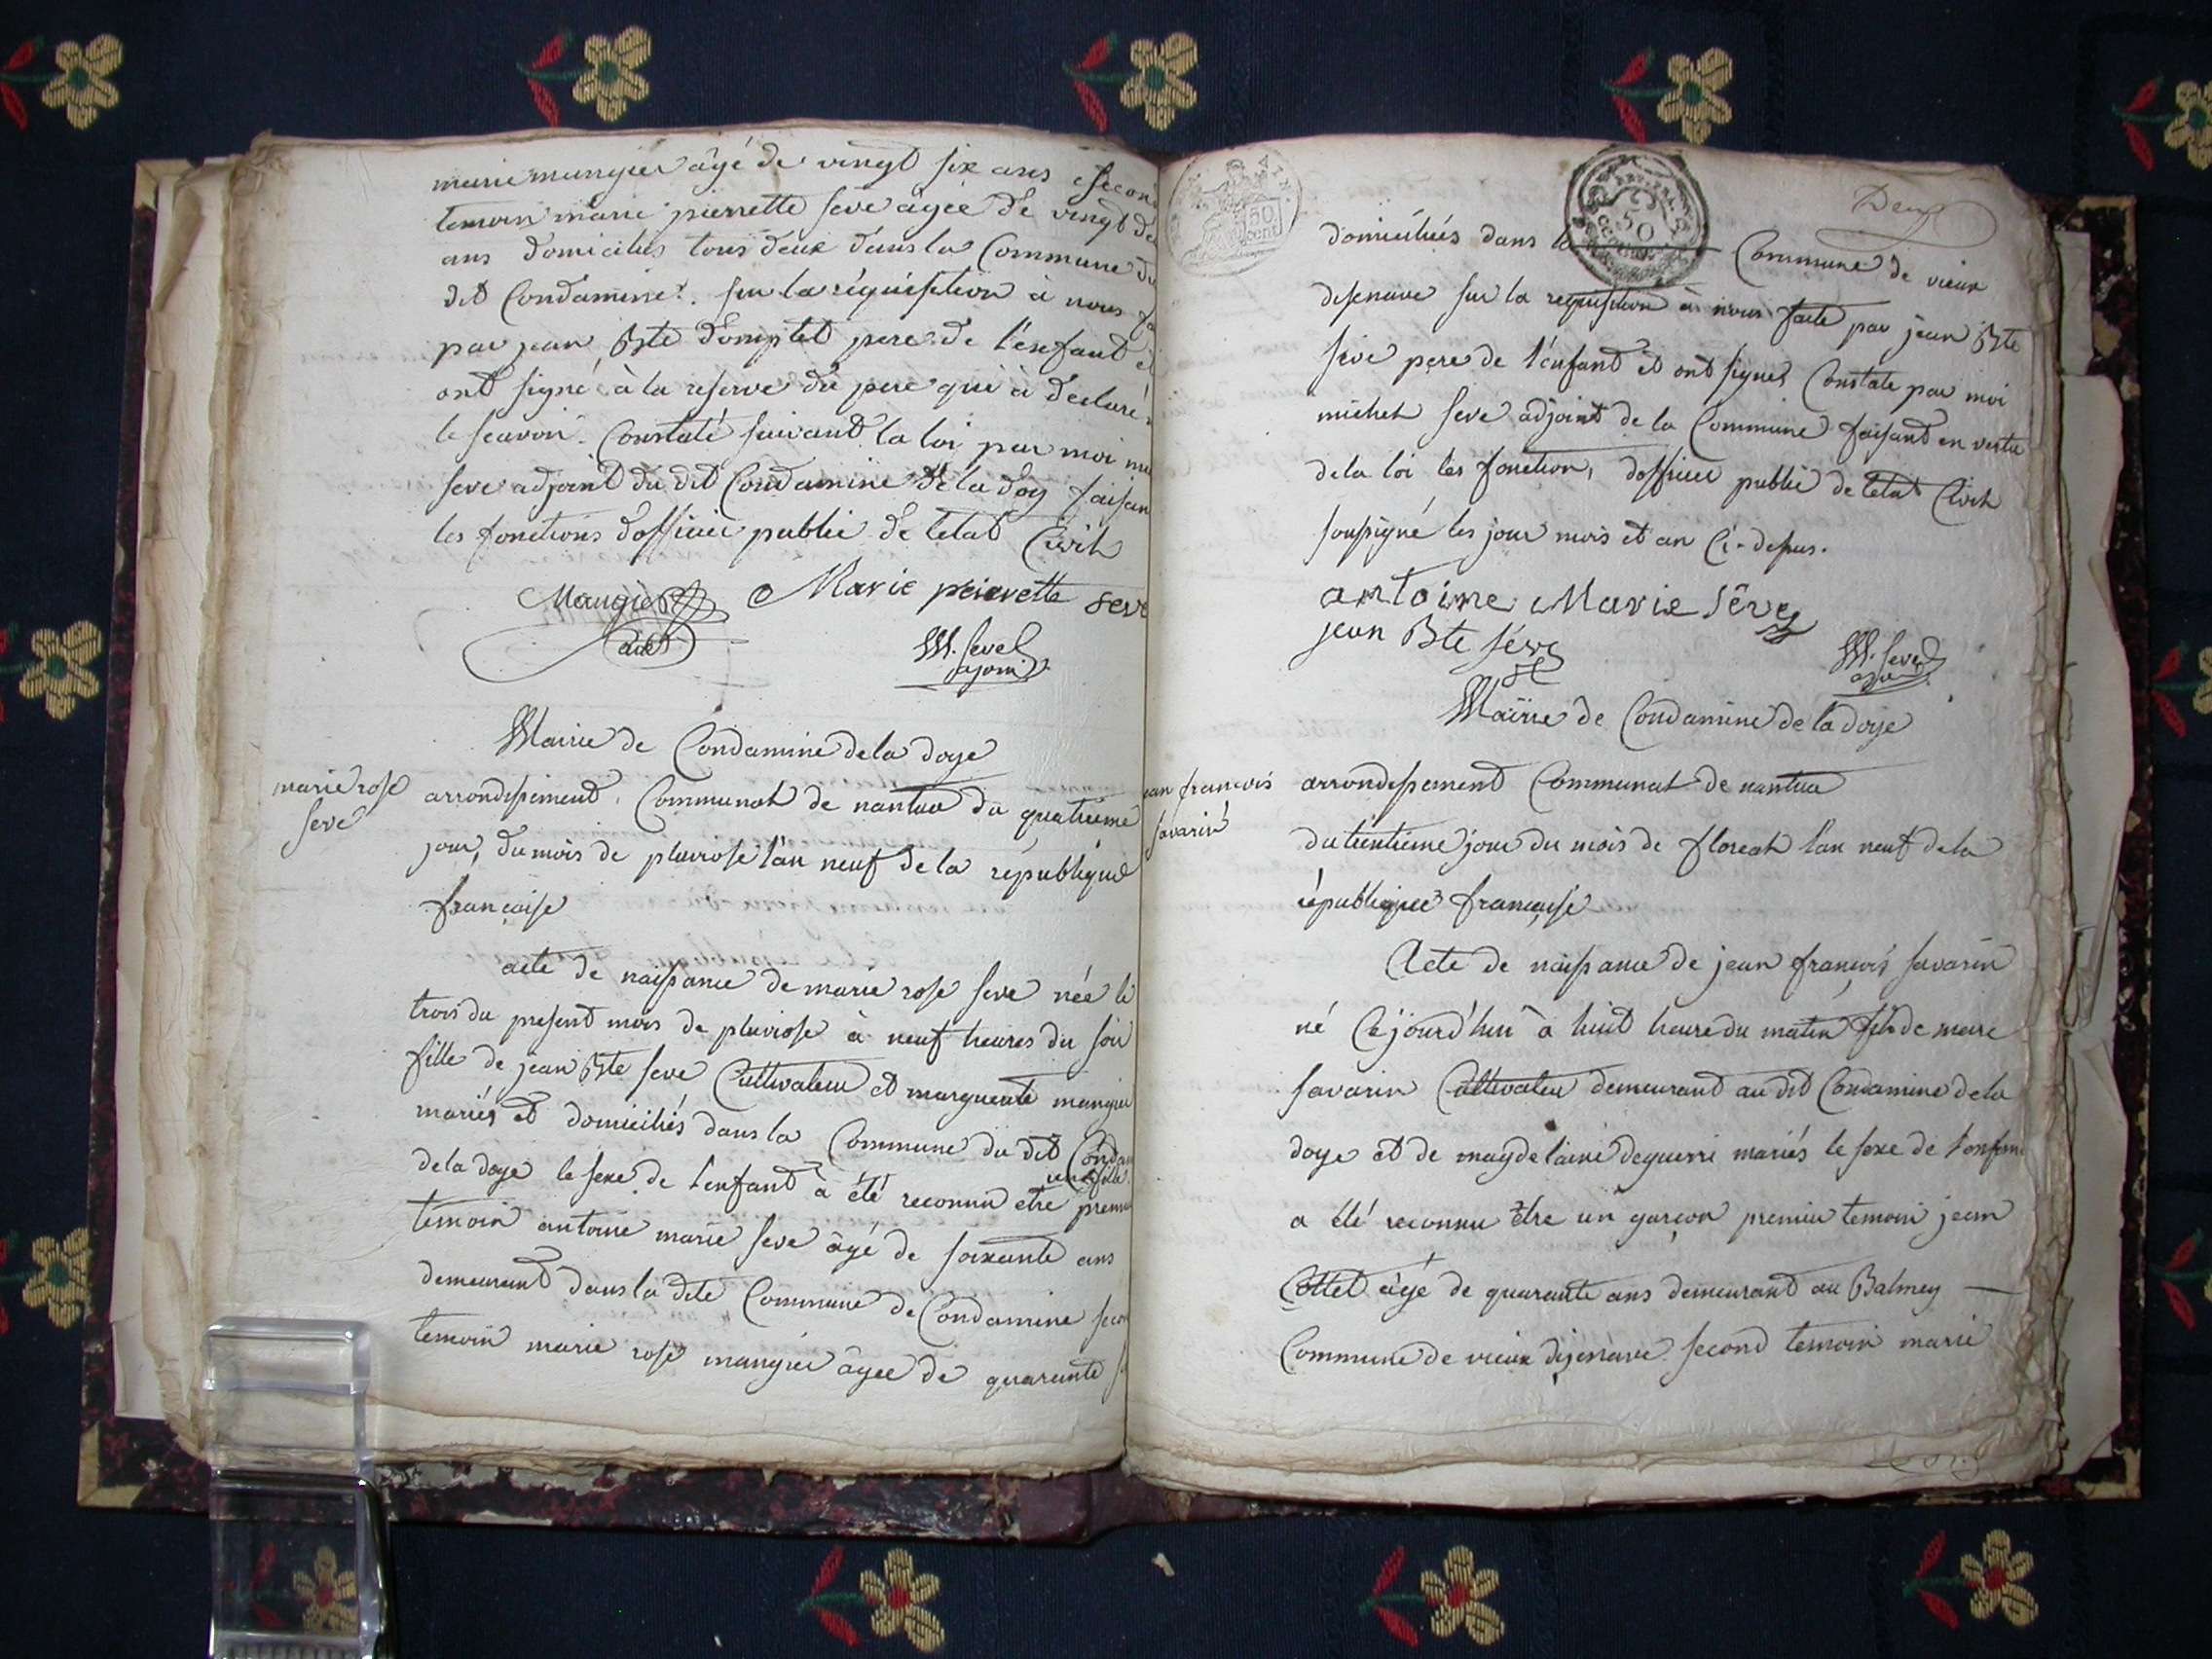 marie mangier âgé de vingt six ans second
temoin marie pierrette seve âgée de vingt de
ans domiciliés tous deux dans la Commune du
dit Condamine. sur la réquisition à nous fa
par jean Bte domptet pere de l'enfant et
ont signé à la reserve du pere qui à déclaré
le scavoir. Constaté suivant la loi par moi mi
seve adjoint du dit Condamine de la doy faisan
les fonctions d'officier public de l'etat Civil
Mangier Marie peirrette seve
M. Seve
ajoint
Mairie de Condamine de la doye
marie rose
seve
arrondissement Communal de nantua du quatrieme
jour, du mois de pluviose l'an neuf de la république
française
acte de naissance de marie rose seve née le
trois du present mois de pluviose à neuf heures du soir
fille de jean Bte seve Cultivateur et marguerite mangier
mariés et domiciliés dans la Commune du dit Condam
de la doye le sexe de l'enfant à été reconnu etre une fille premier
temoin antoine marie seve âgé de soixante ans
demeurant dans la dite Commune de Condamine secon
temoin marie rose mangier âgée de quarante
50
cent
50
Deux
domiciliés dans la Commune de vieux
disenave sur la requisition à nous faite par jean Bte
seve pere de l'enfant et ont signés Constate par moi
michel seve adjoint de la Commune faisant en vertu
de la loi les fonction, dofficier public de letat Civil
soussigné les jour mois et an Ci-dessus.
antoine Marie sève
jean Bte sève
M. Seve
Mairie de Condamine de la doye
ean françois
savarin
arrondissement Communal de nantua
du trentieme jour du mois de floreal l'an neuf de la
république française
Acte de naissance de jean françois savarin
né Cejourd'hui à huit heure du matin fils de marie
savarin Cultivateur demeurant au dit Condamine de la
doye et de magdelaine deguerri mariés le sexe de l'enfan
a été reconnu être un garçon premier temoin jean
Cottet âgé de quarante ans demeurant au Balmey
Commune de vieux disenave second temoin marie